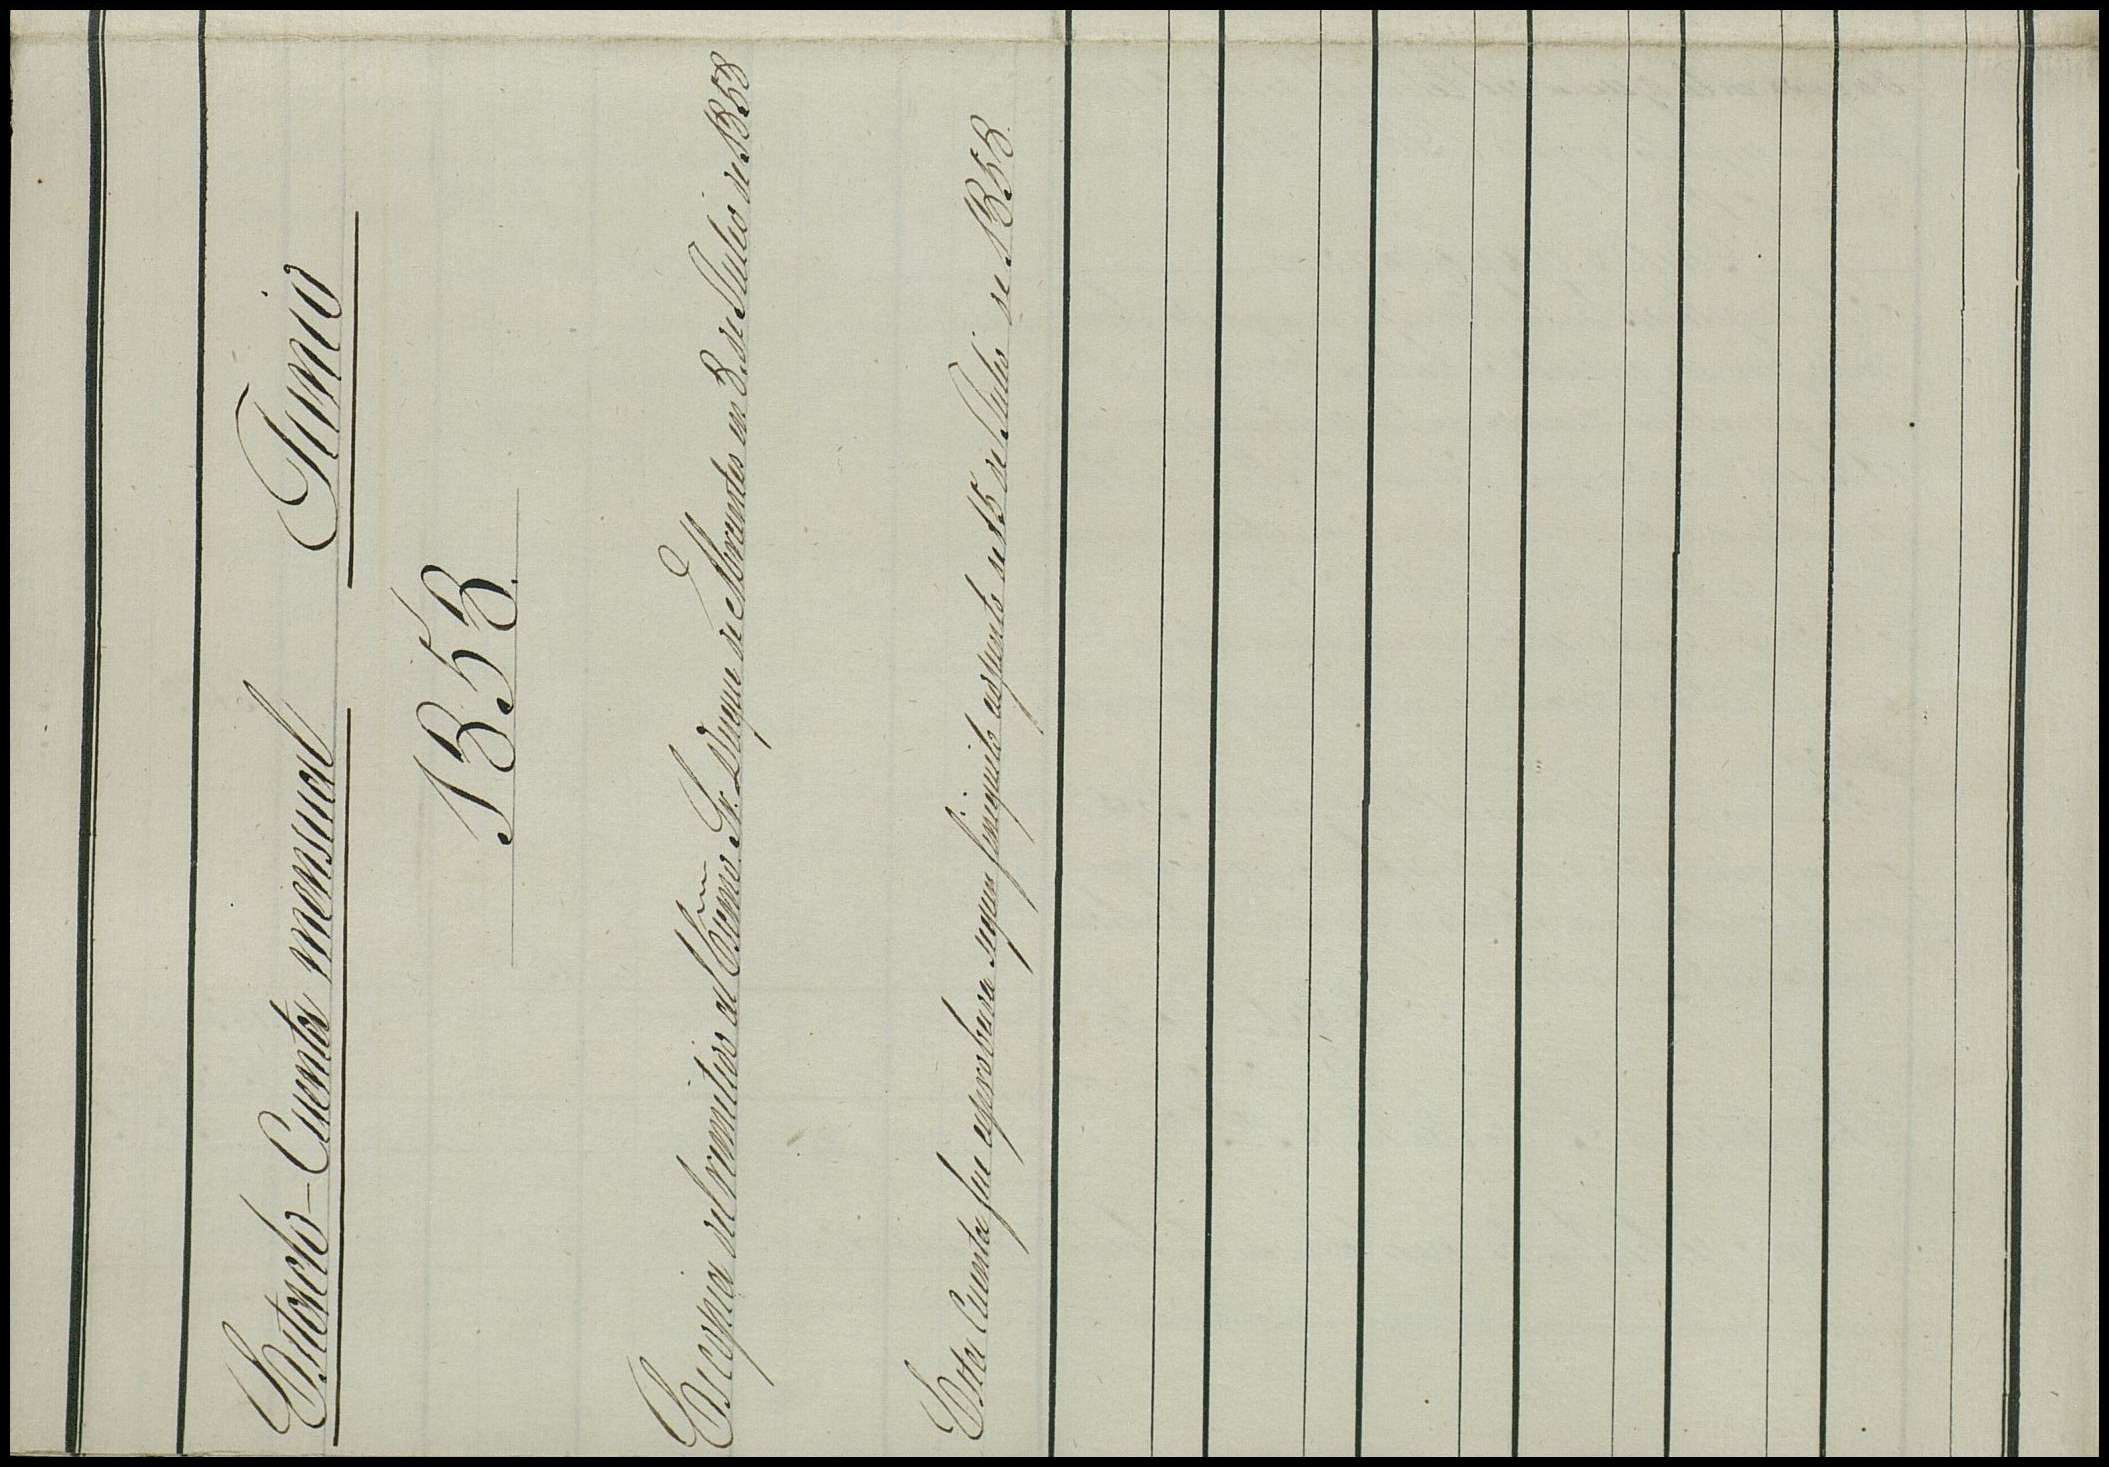 Estado-Cuenta mensual Junio
1858.
Es copia del remitido al Excmo. Sr. Duque de Abrantes en 8 de Julio de 1858
Esta Cuenta fue aprobada segun finiquito adjunto de 15 de Julio de 1858.